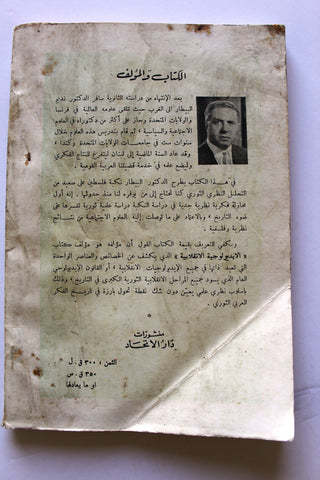 الكتاب والمؤلف
بعد الإنتهاء من دراسته الثانوية سافر الدكتور نديم
البيطار الى الغرب حيث تلقى علومه العالية في فرنسا
والولايات المتحدة وحاز على أكثر من دكتوراه في العلوم
الاجتماعية والسياسية ، ثم قام بتدريس هذه العلوم خلال
سنوات ست في جامعات الولايات المتحدة وكندا ،
وقد عاد السنة الماضية الى لبنان ليتفرغ للنتاج الفكري
وليضع علمه في خدمة قضيتنا العربية القومية .
في هذا الكتاب يطرح الدكتور البيطار نكبة فلسطين على صعيد من
التحليل النظري الثوري كنا نحتاج إلى من يوفره لنا منذ حدوثها . إنه أولى
محاولة فكرية نظرية جدية في دراسة النكبة دراسة علمية ثورية تفسرها في
ضوء التاريخ ، وبالاعتماد على ما توصلت إليه العلوم الاجتماعية من نتائج
نظرية وفلسفية .
ويكفي التعريف بقيمة الكتاب القول أن مؤلفه هو مؤلف كتاب
« الايديولوجية الانقلابية » الذي يكشف عن الخصائص والعناصر الواحدة
التي تعيد ذاتها في جميع الايديولوجيات الانقلابية ، أو القانون الايديولوجي
العام الذي يسود جميع المراحل الانقلابية الثورية الكبرى في التاريخ ، وذلك
بأسلوب نظري علمي يعين دون شك نقطة تحول بارزة في تاريخ الفكر
العربي الثوري .
منشورات
دار الاتحاد
الثمن : ٣٠٠ ق . ل
٣٥٠ ق . س
او ما يعادلها